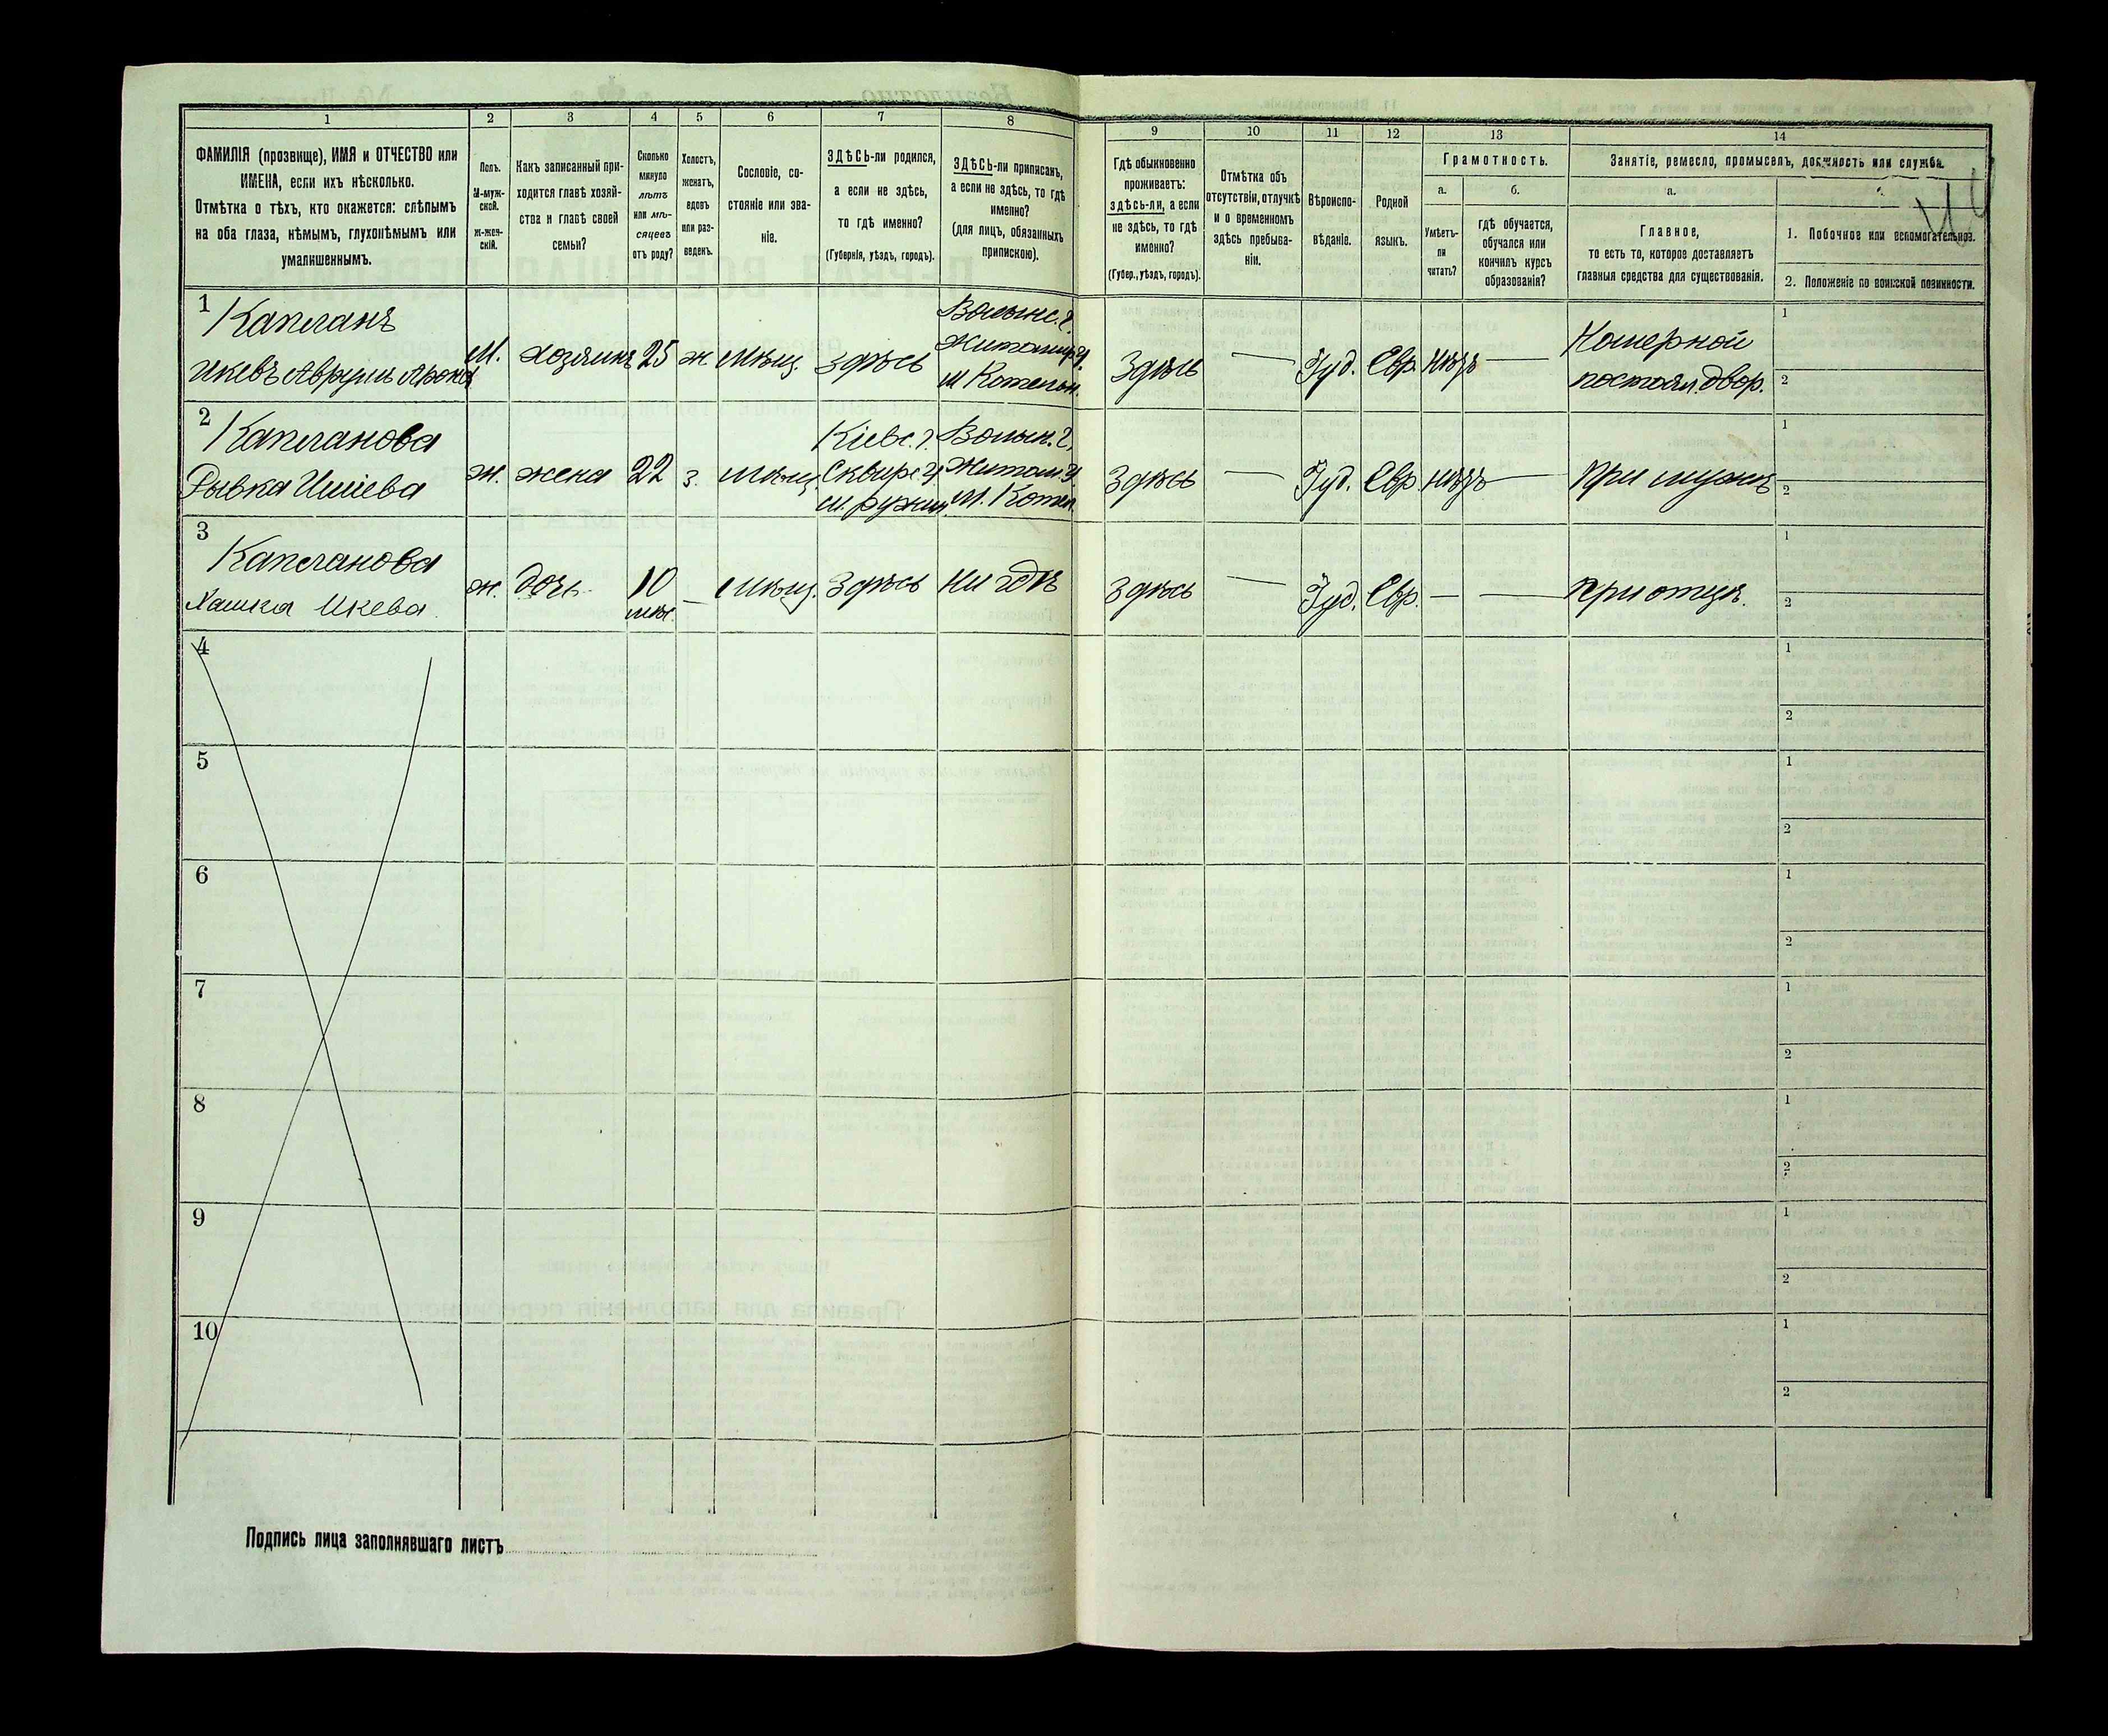 1
2
3
4
5
6
7
8
9
10
11
12
13
14
ФАМИЛІЯ (прозвище), ИМЯ и ОТЧЕСТВО или
ИМЕНА, если ихъ нѣсколько.
Отмѣтка о тѣхъ, кто окажется: слѣпымъ
на оба глаза, нѣмымъ, глухонѣмымъ или
умалишеннымъ.
Полъ.
М-муж-
ской.
Ж-жен-
скій.
Какъ записанный при-
ходится главѣ хозяй-
ства и главѣ своей
семьи?
Сколько
минуло
лѣтъ
или мѣ-
сяцевъ
отъ роду?
Холостъ,
женатъ,
вдовъ
или раз-
веденъ.
Сословіе, со-
стояніе или зва-
ніе.
ЗДѢСЬ-ли родился,
а если не здѣсь,
то гдѣ именно?
(Губернія, уѣздъ, городъ).
ЗДѢСЬ-ли приписанъ,
а если не здѣсь, то гдѣ
именно?
(для лицъ, обязанныхъ
припискою).
Гдѣ обыкновенно
проживаетъ:
здѣсь-ли, а если
не здѣсь, то гдѣ
именно?
(Губер., уѣздъ, городъ).
Отмѣтка объ
отсутствіи, отлучкѣ
и о временномъ
здѣсь пребыва-
ніи.
Вѣроиспо-
вѣданіе.
Родной
языкъ.
Грамотность.
а.
Умѣетъ-
ли
читать?
б.
гдѣ обучается,
обучался или
кончилъ курсъ
образованія?
Занятіе, ремесло, промыселъ, должность или служба.
а.
Главное,
то есть то, которое доставляетъ
главныя средства для существованія.
1. Побочное или вспомогательное.
2. Положеніе по воинской повинности.
1
Капланъ
Икевъ Аврумъ Арона
М.
хозяинъ
25
ж
мѣщ.
здѣсь
Волынс. г.
Житомир. у
м Котельн.
Здѣсь
—
Іуд.
Евр.
нѣтъ
—
Номерной
постоял. двор.
1
2
2
Капланова
Рывка
ж.
жена
22
з.
мѣщ.
Кіевс. г.
Сквирс. у
м. Ружин
Волын. г.
Житом. у
м. Котел.
Здѣсь
—
Іуд.
Евр
нѣтъ
—
При мужѣ
1
2
3
Капланова
Хашка Икева.
ж.
дочь
10
мѣс.
—
мѣщ.
Здѣсь
Ни гдѣ
Здѣсь
—
Іуд.
Евр.
—
—
При отцѣ.
1
2
4
1
2
5
1
2
6
1
2
7
1
2
8
1
2
9
1
2
10
1
2
Подпись лица заполнявшаго листъ